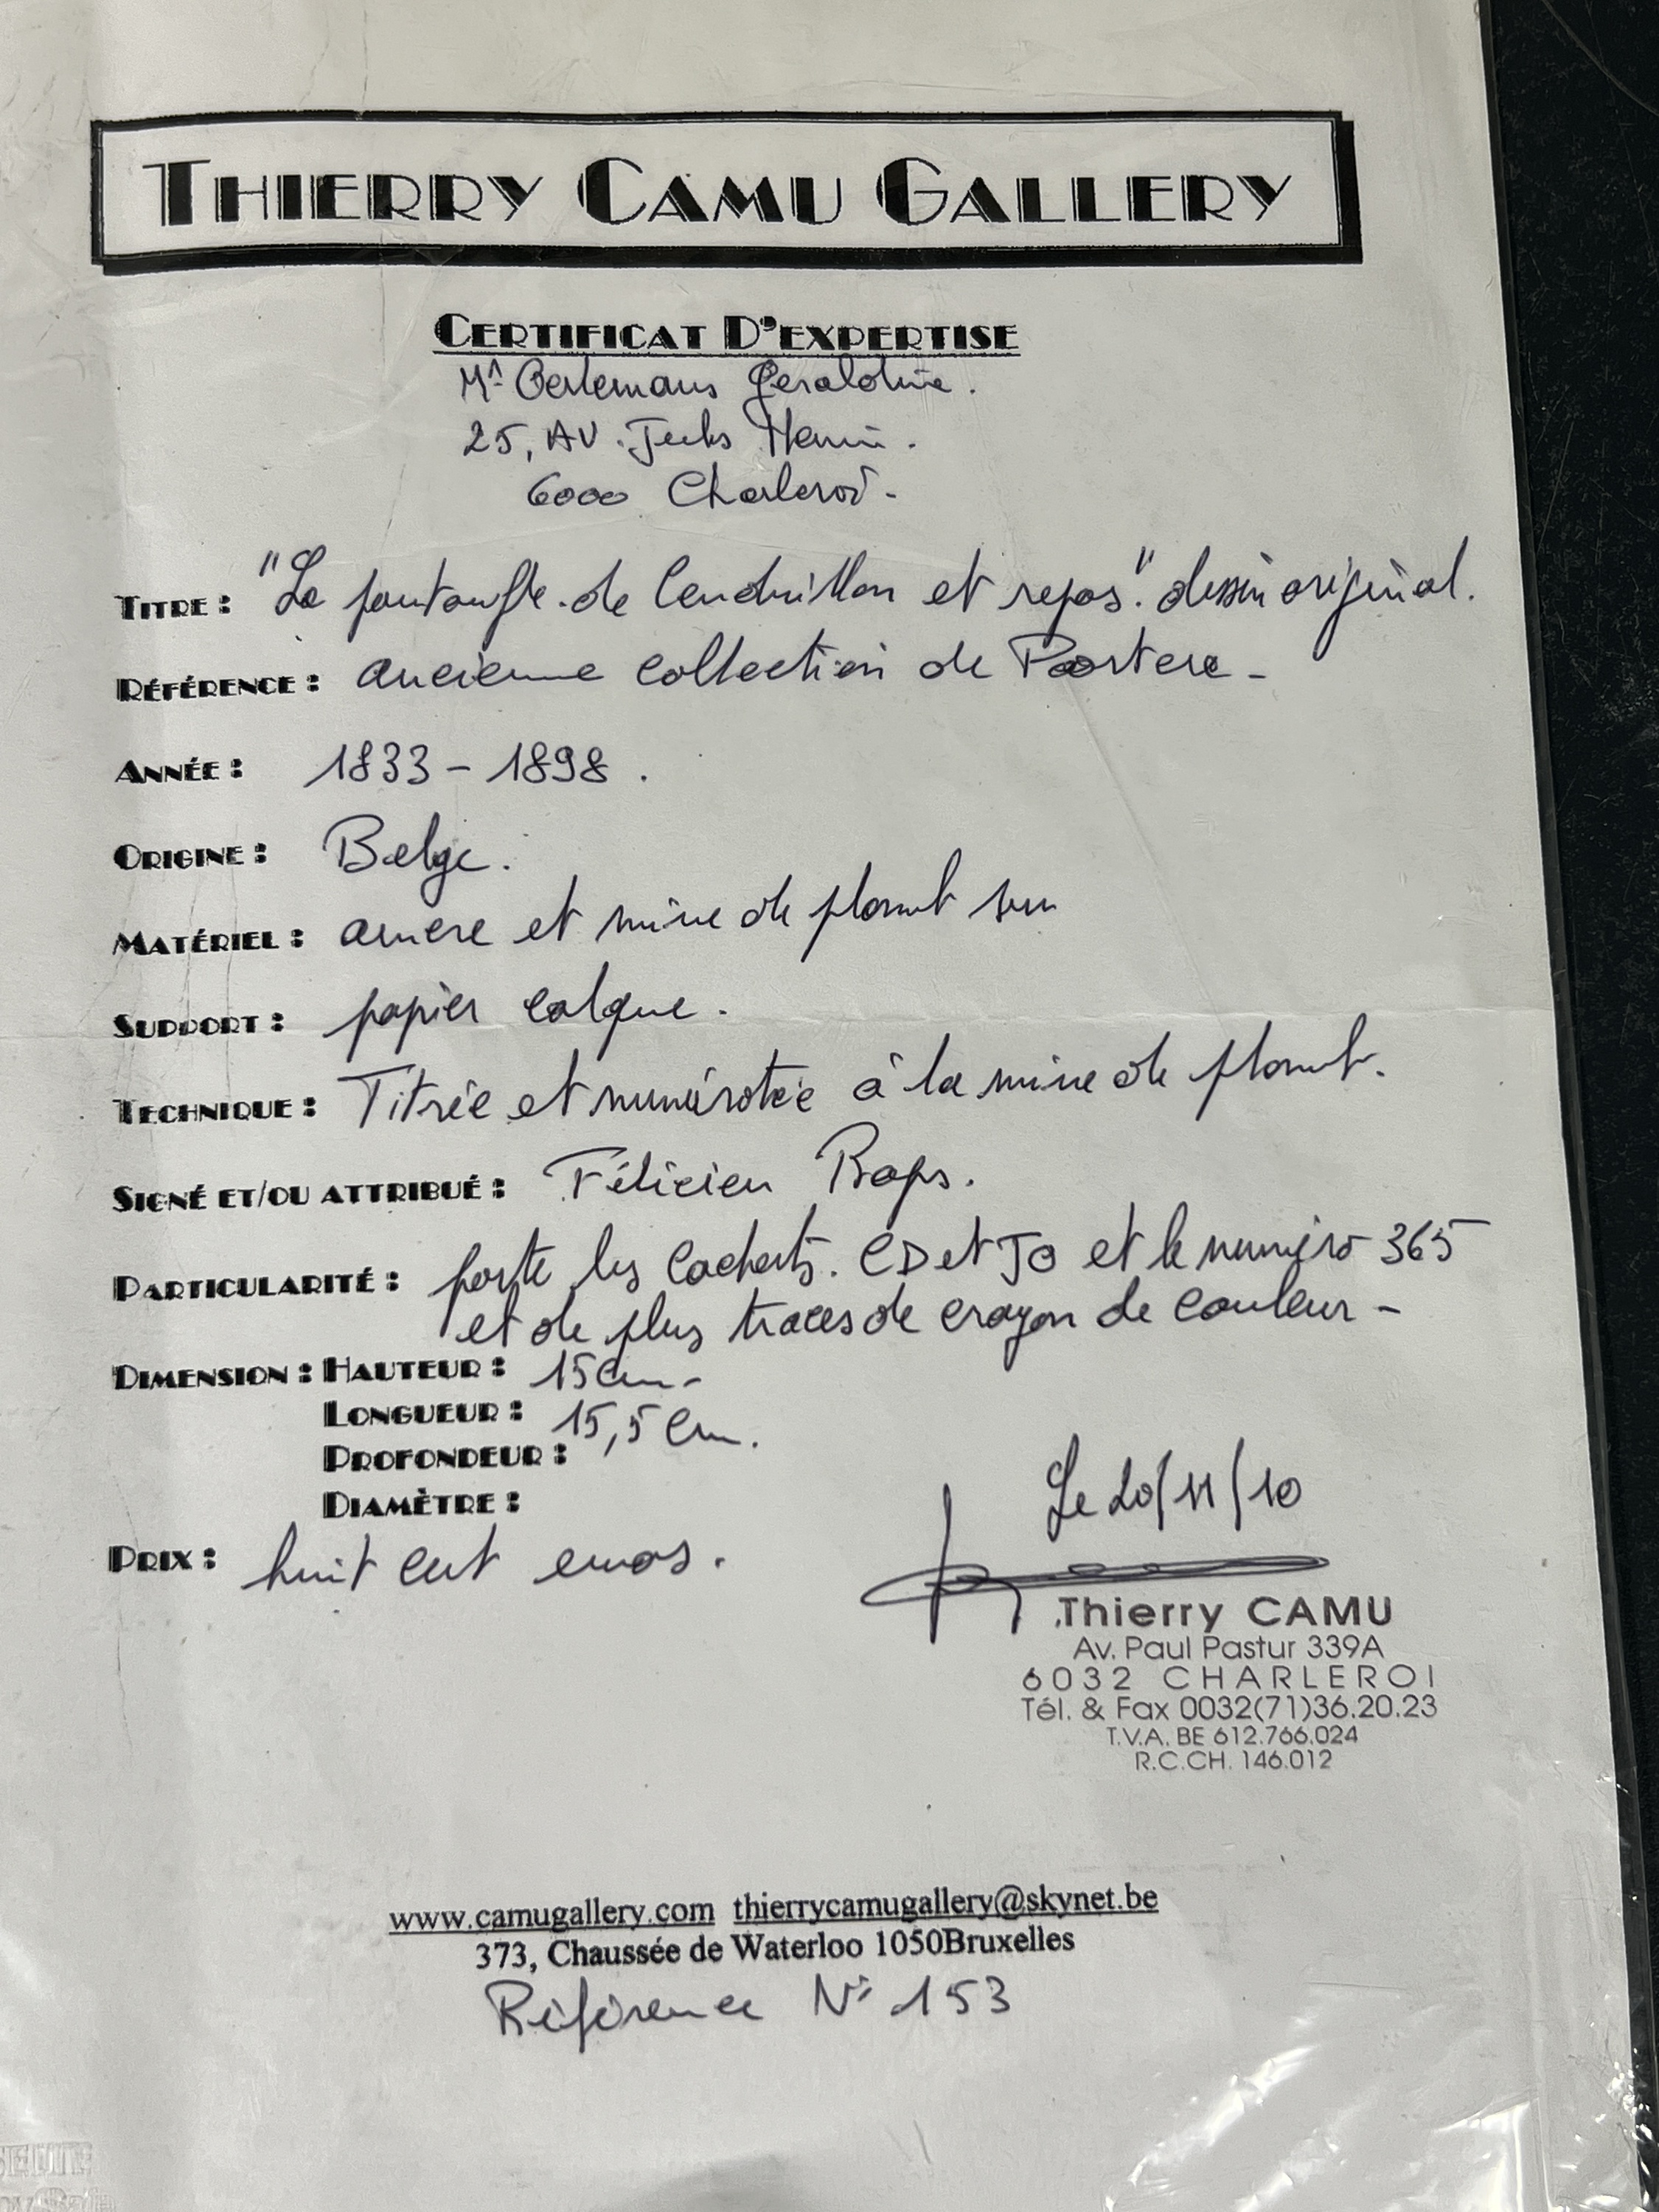 THIERRY CAMU GALLERY
CERTIFICAT D'EXPERTISE
Geraldine.
25, AV. Jules Henin.
6000 Charleroi-
TITRE : "La pantoufle de Cendrillon et repos." dessin original.
RÉFÉRENCE : ancienne collection de
ANNÉE : 1833 - 1898.
ORIGINE : Belge.
MATÉRIEL : encre et mine de plomb sur
SUPPORT : papier calque.
TECHNIQUE : Titrée et numérotée à la mine de plomb.
SIGNÉ ET/OU ATTRIBUÉ : Félicien Rops.
PARTICULARITÉ : porte les cachets. CD et JO et le numéro 365
et de plus traces de crayon de couleur -
DIMENSION : HAUTEUR : 15 cm-
LONGUEUR : 15,5 cm.
PROFONDEUR :
DIAMÈTRE :
Le 20/11/10
PRIX : huit cent euros.
Thierry CAMU
Av. Paul Pastur 339A
6032 CHARLEROI
Tél. & Fax 0032(71)36.20.23
T.V.A. BE 612.766.024
R.C.CH. 146.012
www.camugallery.com thierrycamugallery@skynet.be
373, Chaussée de Waterloo 1050Bruxelles
Référence N° 153